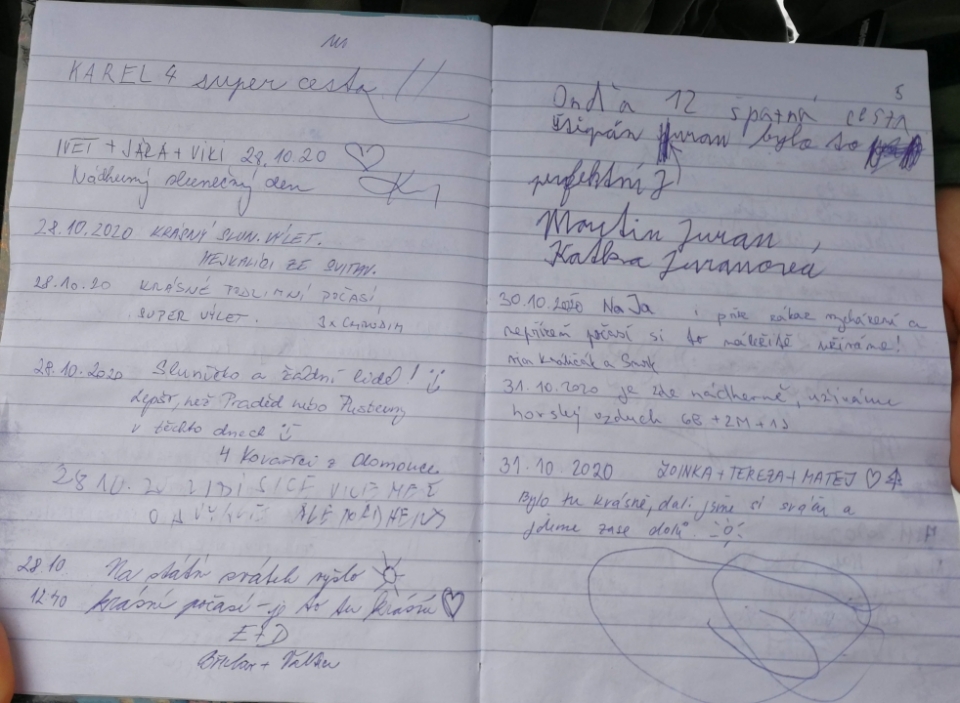 KAREL 4 super cesta !!
IVET + JÁRA + VIKI 28.10.20
Nádherný slunečný den
28.10.2020 KRÁSNÝ SLUN. VÝLET.
HEJKALÍCI ZE SVITAV.
28.10.20 KRÁSNÉ PODZIMNÍ POČASÍ,
SUPER VÝLET. 3x CHRUDIM
28.10.2020 Sluníčko a žádní lidé!
Lepší, než Praděd nebo Pustevny
v těchto dnech
4 Kováříci z Olomouce
28.10.20 LIDÍ SICE VÍCE MÉNĚ
ALE
28.10 Na státní svátek vyšlo
12 40 krásné počasí - je to tu krásné
E+D
5
Onďa 12 špatná cesta
Štěpán Juran bylo to
perfektní
Martin Juran
Katka Juranová
30.10.2020 NaJa i přes zákaz vycházení a
nepřízeň počasí si to náležitě užíváme!
31.10.2020 je zde nádherně, užíváme
horský vzduch 6B + 2M + 1J
31.10 2020 JOINKA + TEREZA + MATEJ
Bylo tu krásně, dali jsme si sváču a
jdeme zase dolů.